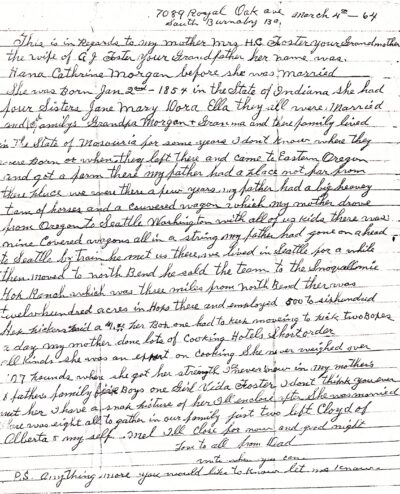 7089 Royal Oak ave March 4th - 64
South Burnaby BC,
This is in Regards to my mother Mrs H.C. Foster your Grandmother
the wife of A.J. Foster your Grandfather her name was.
Hana Cathrine Morgan before she was married
She was Born Jan 2nd - 1854 in the State of Indiana she had
four Sisters Jane Mary Dora Ella they all were Married
and familys Grandpa Morgan + Granma and there family lived
in the State of Missouria for some years I don't know where they
were Born or when they left they and came to Eastern Oregon
and got a farm there my father had a place not far from
there place we were there a few years. my father had a big heavey
tam of horses and a couvered wagon which my mother drove
from Oregon to Seattle Washington with all of us kids there was
nine Covered wagons all in a string my father had gone on ahead
to Seattle by train he met us there, we lived in Seattle for a while
then moved to north Bend he sold the team to the Snoqualomie
Hop Ranch which was three miles from North Bend ther was
twelve hundred acres in Hops there and employed 500 to sixhundred
Hop pickers Paid a \$1.00 her Box one had to keep moveing to pick two Boxes
a day my mother done lots of Cooking Hotels Short order
all kinds she was an expert on Cooking She never weighed over
127 pounds when she got her strength I never knew in my mothers
& fathers family Boys one Girl Vida Foster I don't think you ever
met her. I have a snap picture of her Ill enclose after she was married
there was eight all to gather in our family just two left Cloyd of
Alberta & my self. Mel Ill Close for now and good night
Love to all from Dad
write when you can
P.S. Anything more you would like to know let me know